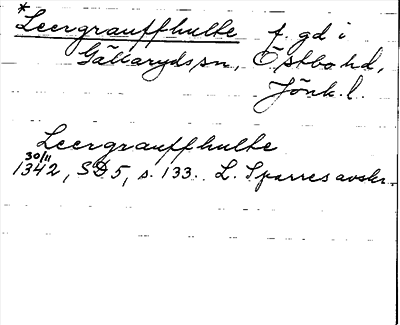 *Leergrauffhulte f. gd i
Gällaryds sn, Östbo hd,
Jönk. l.
Leergrauffhulte
30/11
1342, SD 5, s. 133. L. Sparres avskr.